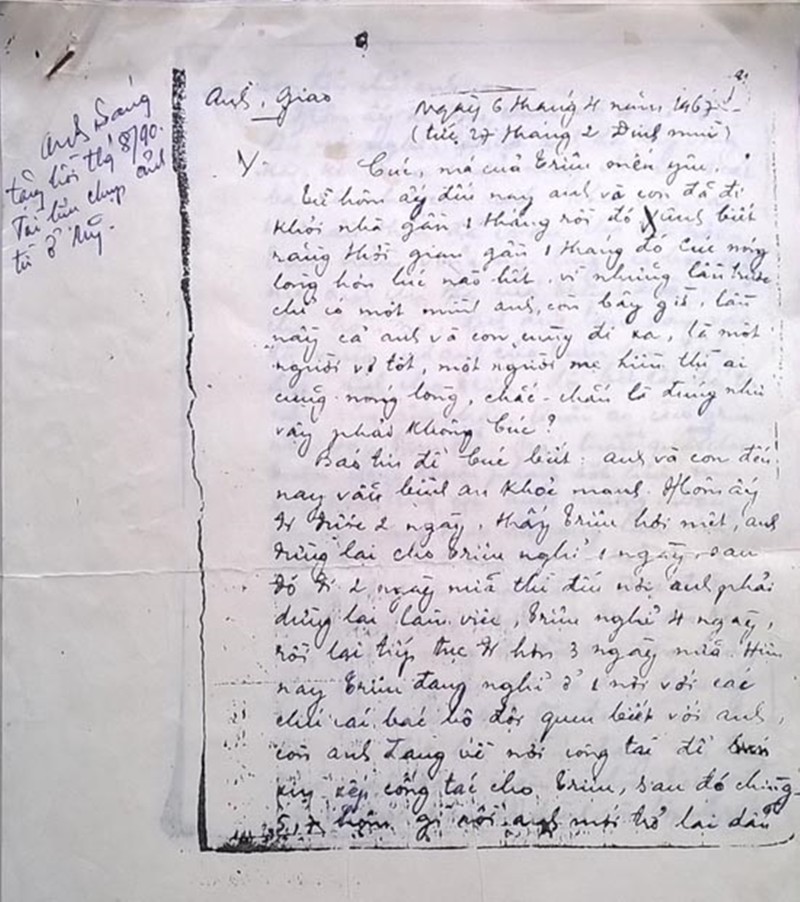 Anh Sáng
tặng hồi thg 8/90.
Tài liệu chụp ảnh
từ ở Mỹ.
Anh. Giao
Ngày 6 tháng 4 năm 1967
(tức 27 tháng 2 Đinh mùi)
Cúc, má của Triều mến yêu.
Từ hôm ấy đến nay anh và con đã đi
khỏi nhà gần 1 tháng rồi đó, anh biết
rằng thời gian gần 1 tháng đó Cúc nóng
lòng hơn lúc nào hết. vì những lần trước
chỉ có một mình anh, còn bây giờ, lần
này cả anh và con cùng đi xa, là một
người vợ tốt, một người mẹ hiền thì ai
cũng nóng lòng, chắc-chắn là đúng như
vậy phải không Cúc?
Báo tin để Cúc biết: anh và con đến
nay vẫn bình an khoẻ mạnh. Hôm ấy
đi được 2 ngày, thấy Triều hơi mệt, anh
dừng lại cho Triều nghỉ 1 ngày, sau
đó đi 2 ngày nữa thì đến nơi anh phải
dừng lại làm việc, Triều nghỉ 4 ngày,
rồi lại tiếp tục đi hơn 3 ngày nữa. Hiện
nay Triều đang nghỉ ở 1 nơi với các
chú các bác bộ đội quen biết với anh,
còn anh đang về nơi công tác để
xin xếp công tác cho Triều, sau đó chừng
5, 7 hôm gì rồi anh mới trở lại dẫn